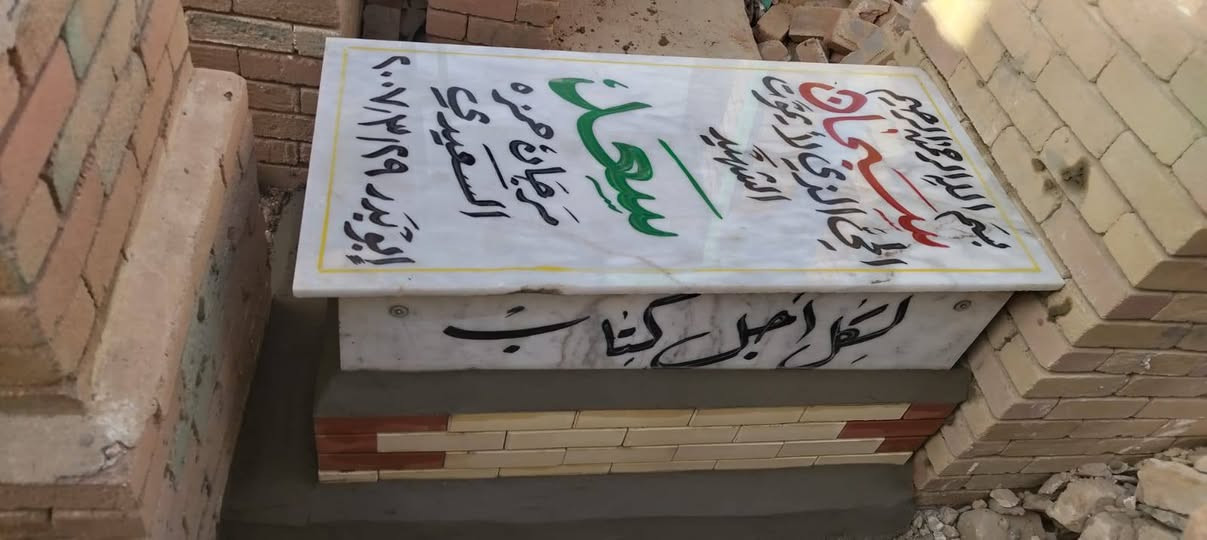 بسم الله الرحمن الرحيم
سبحان
الحي الذي لا يموت
الشهيد
سعد
مرجان حمزه
السعيدي
ابو زيد ٢٠٠٧/٣/٢٩
لكل أجل كتاب